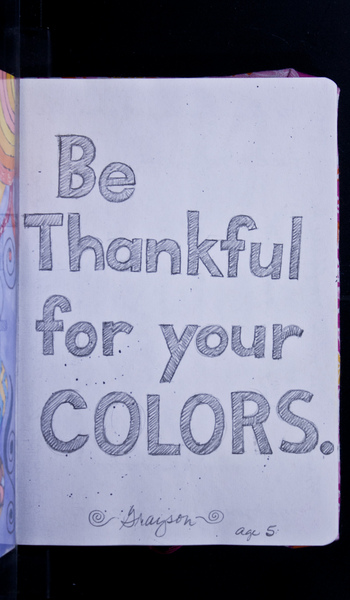 Be
Thankful
for your
COLORS.
Grayson
age 5